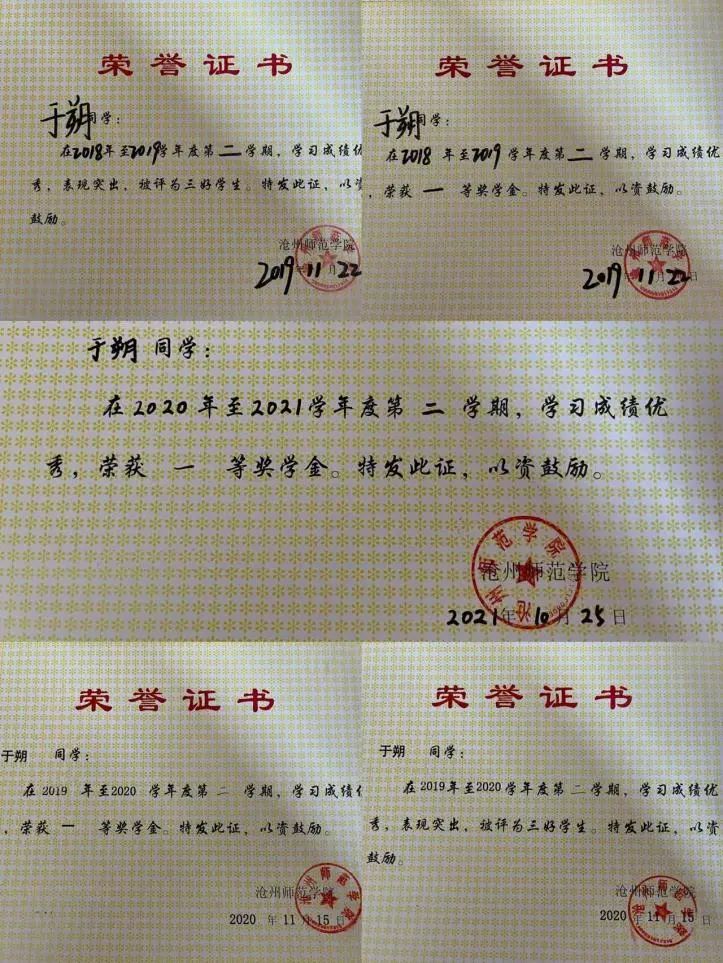 荣誉证书
于朔同学：
在2018年至2019学年度第二学期，学习成绩优
秀，表现突出，被评为三好学生。特发此证，以资
鼓励。
沧州师范学院
2019年11月22
荣誉证书
于朔同学：
在2018年至2019学年度第二学期，学习成绩优
，荣获一等奖学金。特发此证，以资鼓励。
沧州师范学院
2019年11月22日
于朔 同学：
在2020年至2021学年度第二学期，学习成绩优
秀，荣获一等奖学金。特发此证，以资鼓励。
沧州师范学院
沧州师范学院
2021年10月25日
荣誉证书
于朔 同学：
在2019年至2020学年度第二学期，学习成绩优
，荣获一等奖学金。特发此证，以资鼓励。
沧州师范学院
沧州师范学院
2020年11月15日
荣誉证书
于朔 同学：
在2019年至2020学年度第二学期，学习成绩优
秀，表现突出，被评为三好学生。特发此证，以资
鼓励。
沧州师范学院
2020年11月15日